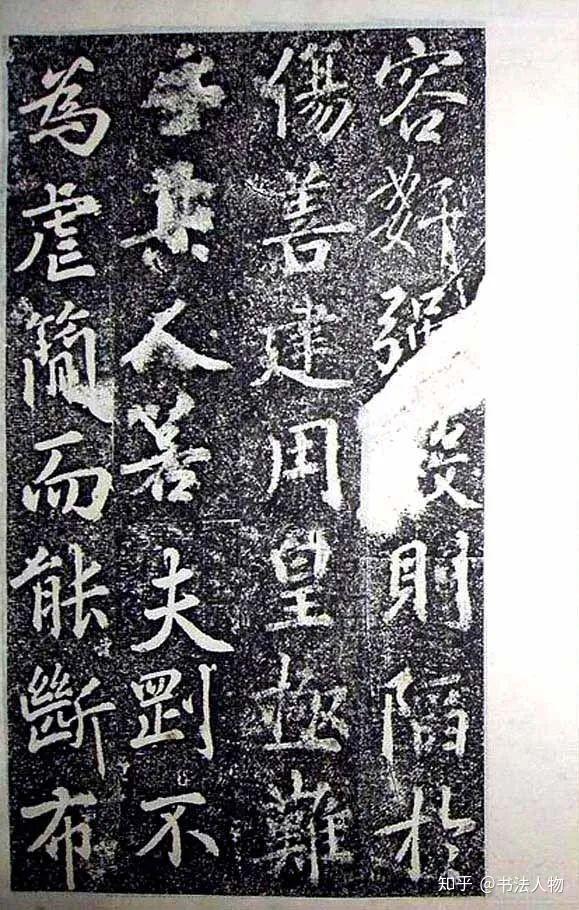 容姧則陷於
傷善建用皇極難
其人若夫剛不
為虐簡而能斷布
知乎 @书法人物